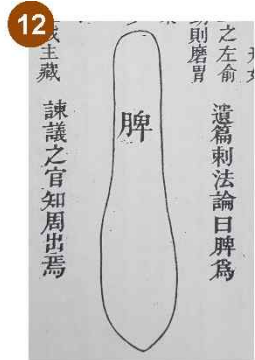 12
之左俞
則磨胃
主藏
遺篇刺法論曰脾爲
脾
諫議之官知周出焉